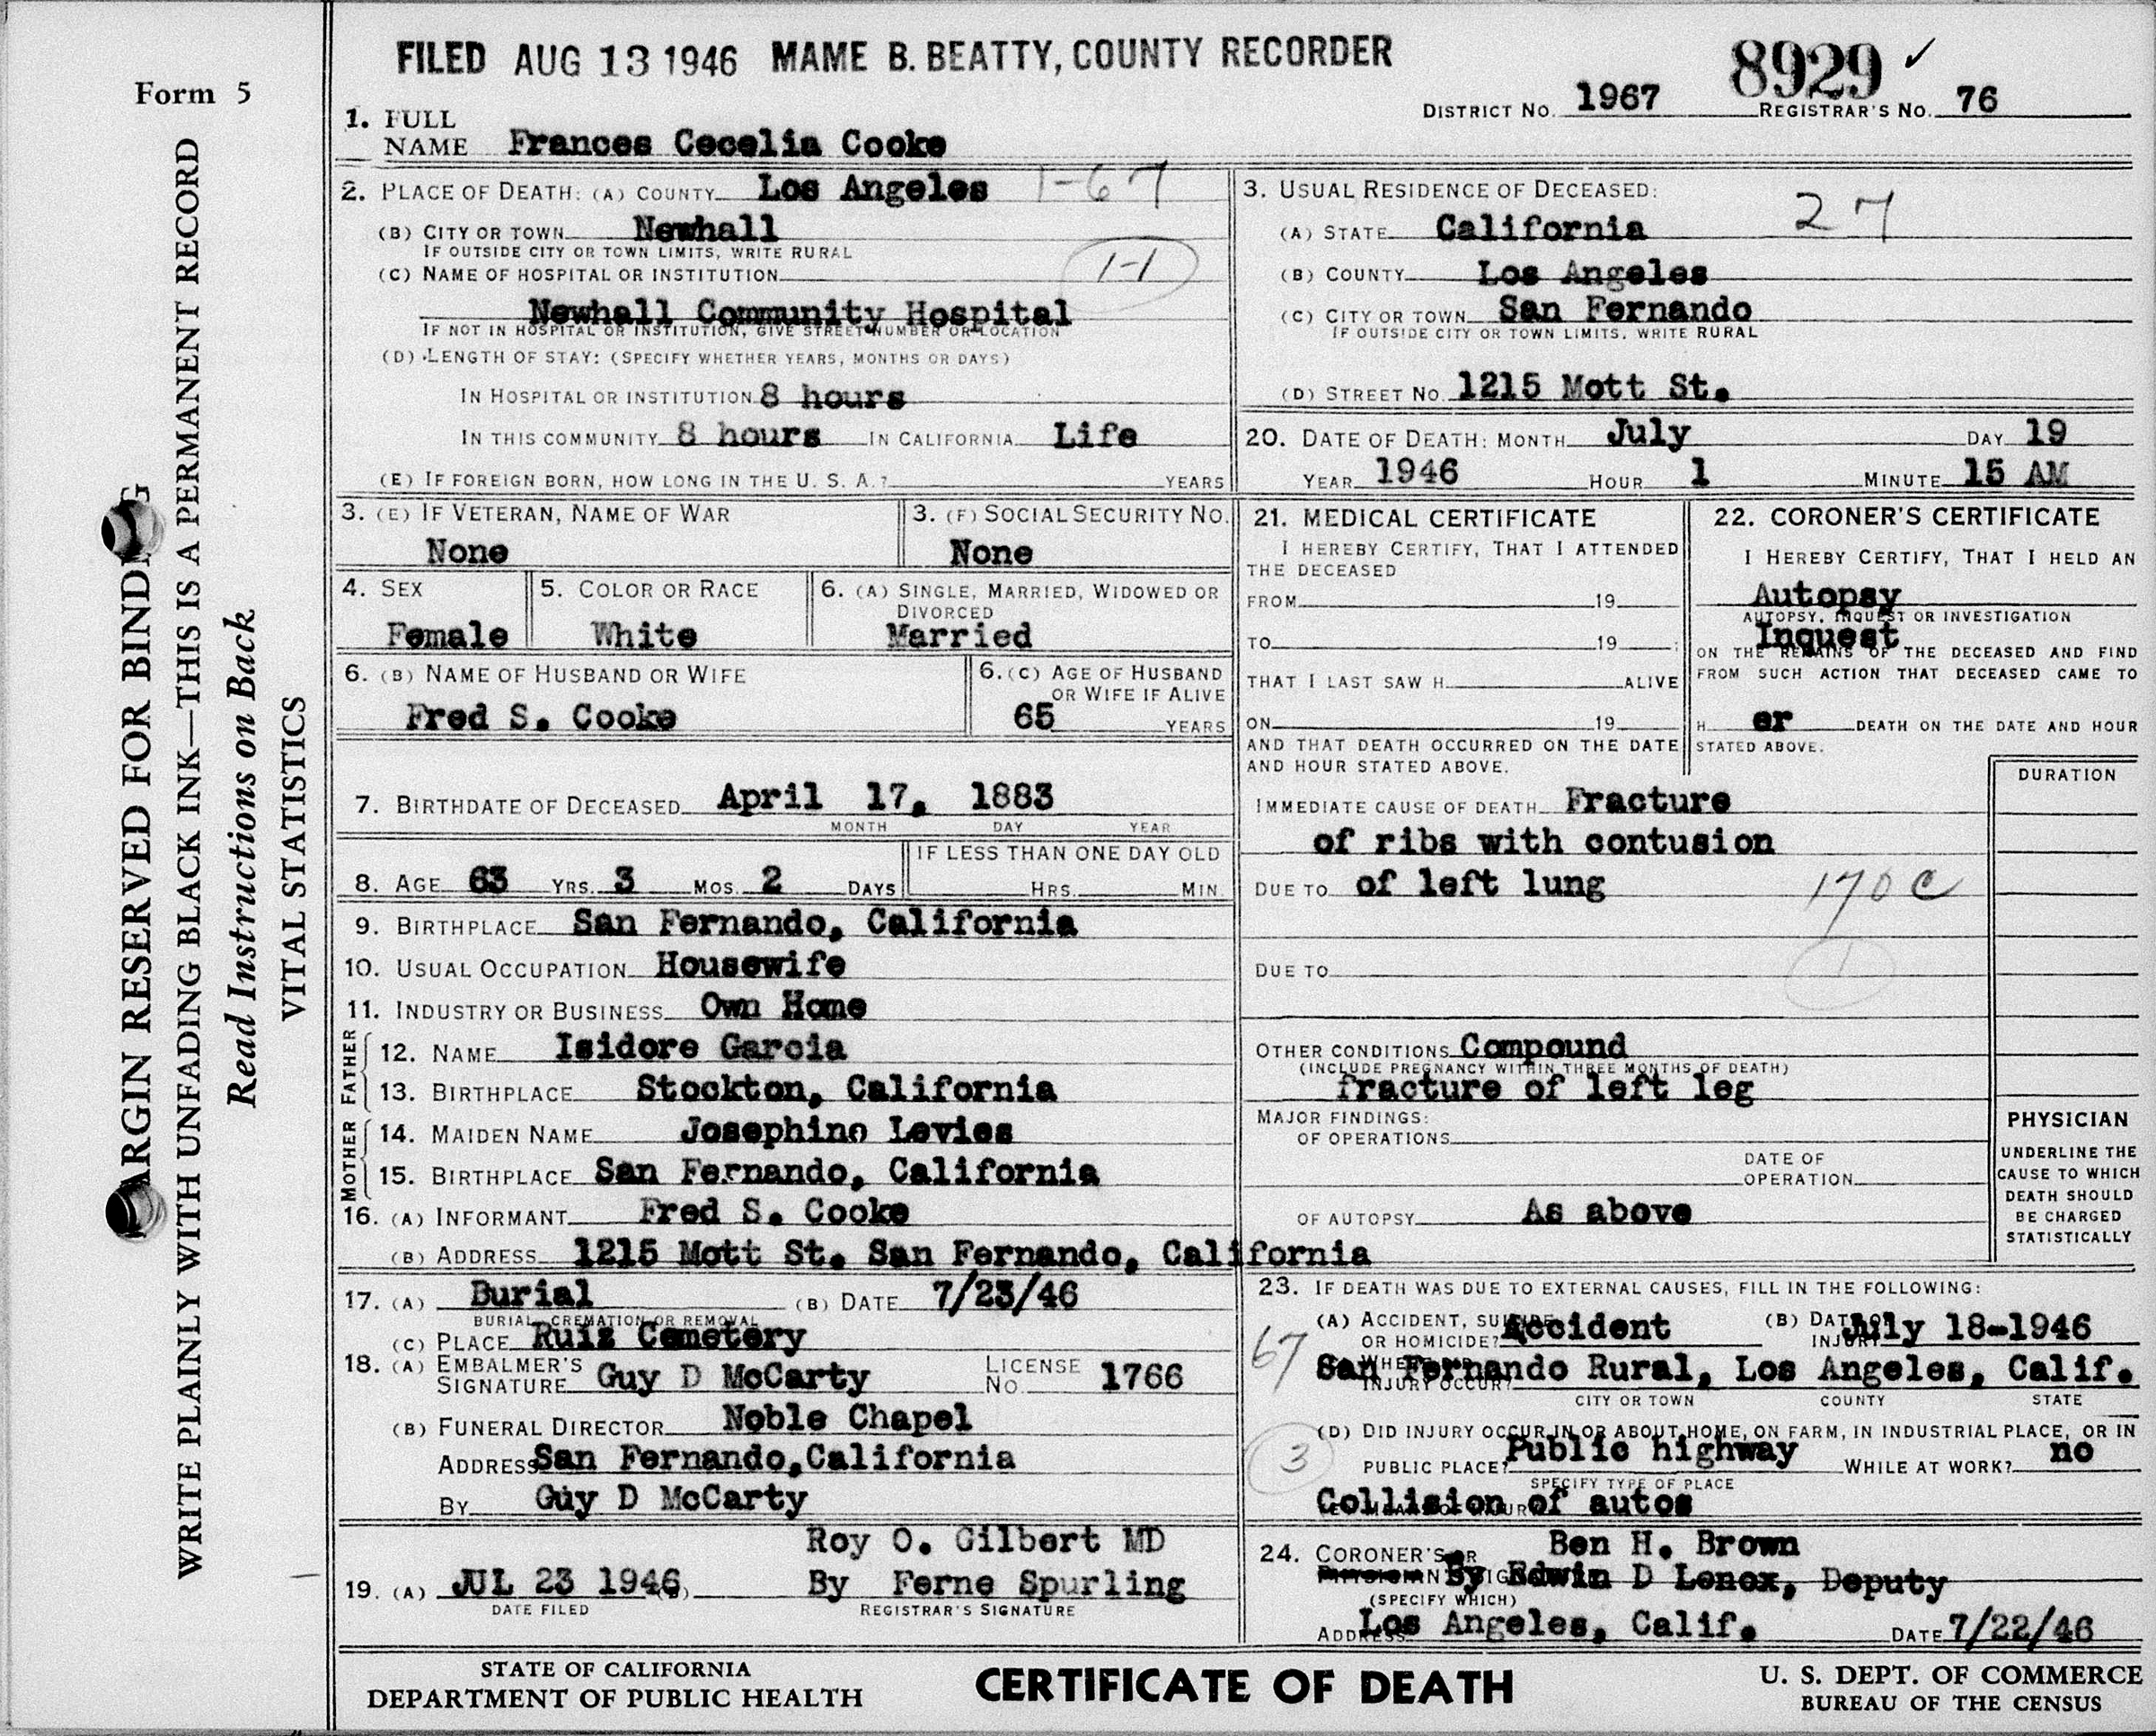 FILED AUG 13 1946 MAME B. BEATTY, COUNTY RECORDER
8929 ✓
Form 5
DISTRICT NO. 1967 REGISTRAR'S NO. 76
1. FULL NAME Frances Cecelia Cooke
2. PLACE OF DEATH: (A) COUNTY Los Angeles 1-67
(B) CITY OR TOWN Newhall
IF OUTSIDE CITY OR TOWN LIMITS, WRITE RURAL
(C) NAME OF HOSPITAL OR INSTITUTION 1-1
Newhall Community Hospital
IF NOT IN HOSPITAL OR INSTITUTION, GIVE STREET NUMBER OR LOCATION
(D) LENGTH OF STAY: (SPECIFY WHETHER YEARS, MONTHS OR DAYS)
IN HOSPITAL OR INSTITUTION 8 hours
IN THIS COMMUNITY 8 hours IN CALIFORNIA Life
(E) IF FOREIGN BORN, HOW LONG IN THE U. S. A.? YEARS
3. USUAL RESIDENCE OF DECEASED: 27
(A) STATE California
(B) COUNTY Los Angeles
(C) CITY OR TOWN San Fernando
IF OUTSIDE CITY OR TOWN LIMITS, WRITE RURAL
(D) STREET NO. 1215 Mott St.
20. DATE OF DEATH: MONTH July DAY 19
YEAR 1946 HOUR 1 MINUTE 15 AM
3. (E) IF VETERAN, NAME OF WAR
None
3. (F) SOCIAL SECURITY NO.
None
4. SEX
Female
5. COLOR OR RACE
White
6. (A) SINGLE, MARRIED, WIDOWED OR DIVORCED
Married
6. (B) NAME OF HUSBAND OR WIFE
Fred S. Cooke
6. (C) AGE OF HUSBAND OR WIFE IF ALIVE
65 YEARS
7. BIRTHDATE OF DECEASED April 17, 1883
MONTH DAY YEAR
8. AGE 63 YRS. 3 MOS. 2 DAYS
IF LESS THAN ONE DAY OLD
HRS. MIN.
9. BIRTHPLACE San Fernando, California
10. USUAL OCCUPATION Housewife
11. INDUSTRY OR BUSINESS Own Home
FATHER
12. NAME Isidore Garcia
13. BIRTHPLACE Stockton, California
MOTHER
14. MAIDEN NAME Josephine Levies
15. BIRTHPLACE San Fernando, California
16. (A) INFORMANT Fred S. Cooke
(B) ADDRESS 1215 Mott St. San Fernando, California
17. (A) Burial (B) DATE 7/23/46
BURIAL, CREMATION OR REMOVAL
(C) PLACE Ruiz Cemetery
18. (A) EMBALMER'S SIGNATURE Guy D McCarty LICENSE NO. 1766
(B) FUNERAL DIRECTOR Noble Chapel
ADDRESS San Fernando, California
BY Guy D McCarty
Roy O. Gilbert MD
19. (A) JUL 23 1946 By Ferne Spurling
DATE FILED REGISTRAR'S SIGNATURE
21. MEDICAL CERTIFICATE
I HEREBY CERTIFY, THAT I ATTENDED
THE DECEASED
FROM 19
TO 19 ;
THAT I LAST SAW H ALIVE
ON 19
AND THAT DEATH OCCURRED ON THE DATE
AND HOUR STATED ABOVE.
22. CORONER'S CERTIFICATE
I HEREBY CERTIFY, THAT I HELD AN
Autopsy
AUTOPSY, INQUEST OR INVESTIGATION
Inquest
ON THE REMAINS OF THE DECEASED AND FIND
FROM SUCH ACTION THAT DECEASED CAME TO
H er DEATH ON THE DATE AND HOUR
STATED ABOVE.
DURATION
IMMEDIATE CAUSE OF DEATH Fracture
of ribs with contusion
DUE TO of left lung 170 C
DUE TO 1
OTHER CONDITIONS Compound
(INCLUDE PREGNANCY WITHIN THREE MONTHS OF DEATH)
fracture of left leg
MAJOR FINDINGS:
OF OPERATIONS
DATE OF OPERATION
OF AUTOPSY As above
PHYSICIAN
UNDERLINE THE
CAUSE TO WHICH
DEATH SHOULD
BE CHARGED
STATISTICALLY
23. IF DEATH WAS DUE TO EXTERNAL CAUSES, FILL IN THE FOLLOWING:
(A) ACCIDENT, SUICIDE OR HOMICIDE? Accident (B) DATE OF INJURY July 18-1946
67 WHERE DID INJURY OCCUR? San Fernando Rural, Los Angeles, Calif.
CITY OR TOWN COUNTY STATE
(D) DID INJURY OCCUR IN OR ABOUT HOME, ON FARM, IN INDUSTRIAL PLACE, OR IN
3 PUBLIC PLACE? Public highway WHILE AT WORK? no
SPECIFY TYPE OF PLACE
Collision of autos
24. CORONER'S OR PHYSICIAN'S SIGNATURE Ben H. Brown
By Edwin D Lenox, Deputy
(SPECIFY WHICH)
ADDRESS Los Angeles, Calif. DATE 7/22/46
STATE OF CALIFORNIA
DEPARTMENT OF PUBLIC HEALTH
CERTIFICATE OF DEATH
U. S. DEPT. OF COMMERCE
BUREAU OF THE CENSUS
ARGIN RESERVED FOR BINDING
WRITE PLAINLY WITH UNFADING BLACK INK—THIS IS A PERMANENT RECORD
Read Instructions on Back
VITAL STATISTICS